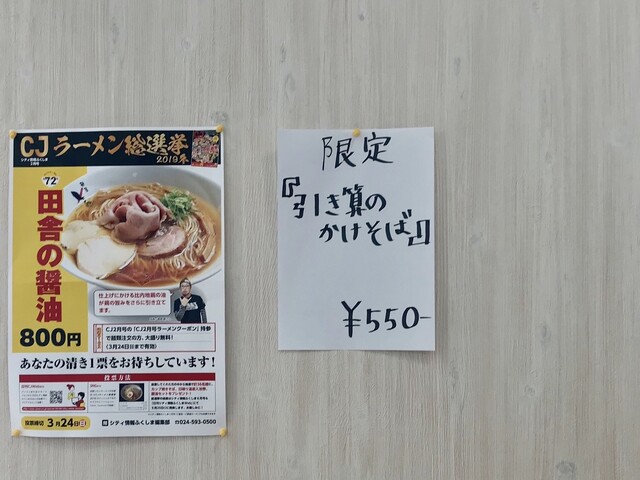 CJラーメン総選挙
2019年
シティ情報ふくしま
2月号
72
田舎の醤油
800円
仕上げにかける比内地鶏の油
が鶏の旨みをさらに引き立て
ます。
CJ2月号の「CJ2月号ラーメンクーポン」持参
で麺類注文の方、大盛り無料!
(3月24日㊐まで有効)
あなたの清き1票をお待ちしています!
投票方法
投票締切 3月24日㊐
シティ情報ふくしま編集部 ☎024-593-0500
限定
『引き算の
かけそば』
¥550-